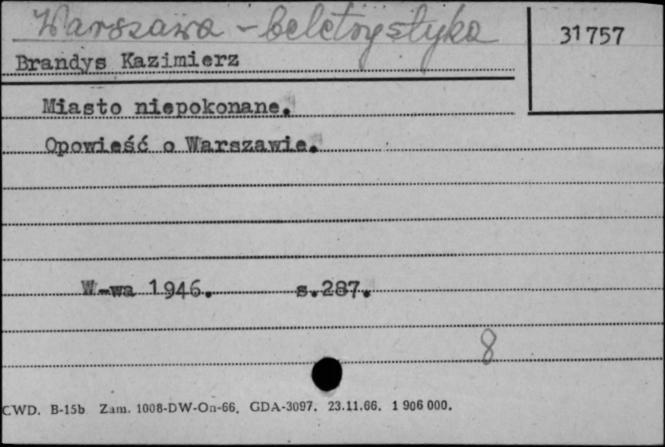 Warszawa - beletrystyka
31757
Brandys Kazimierz
Miasto niepokonane.
Opowieść o Warszawie.
W-wa 1946. s.287.
8
CWD. B-15b Zam. 1008-DW-On-66. GDA-3097. 23.11.66. 1 906 000.